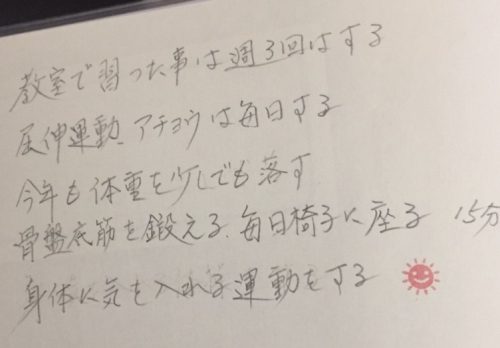 教室で習った事は週3回はする
屈伸運動、アチョウは毎日する
今年も体重を少しでも落す
骨盤底筋を鍛える 毎日椅子に座る 15分
身体に気を入れる運動をする